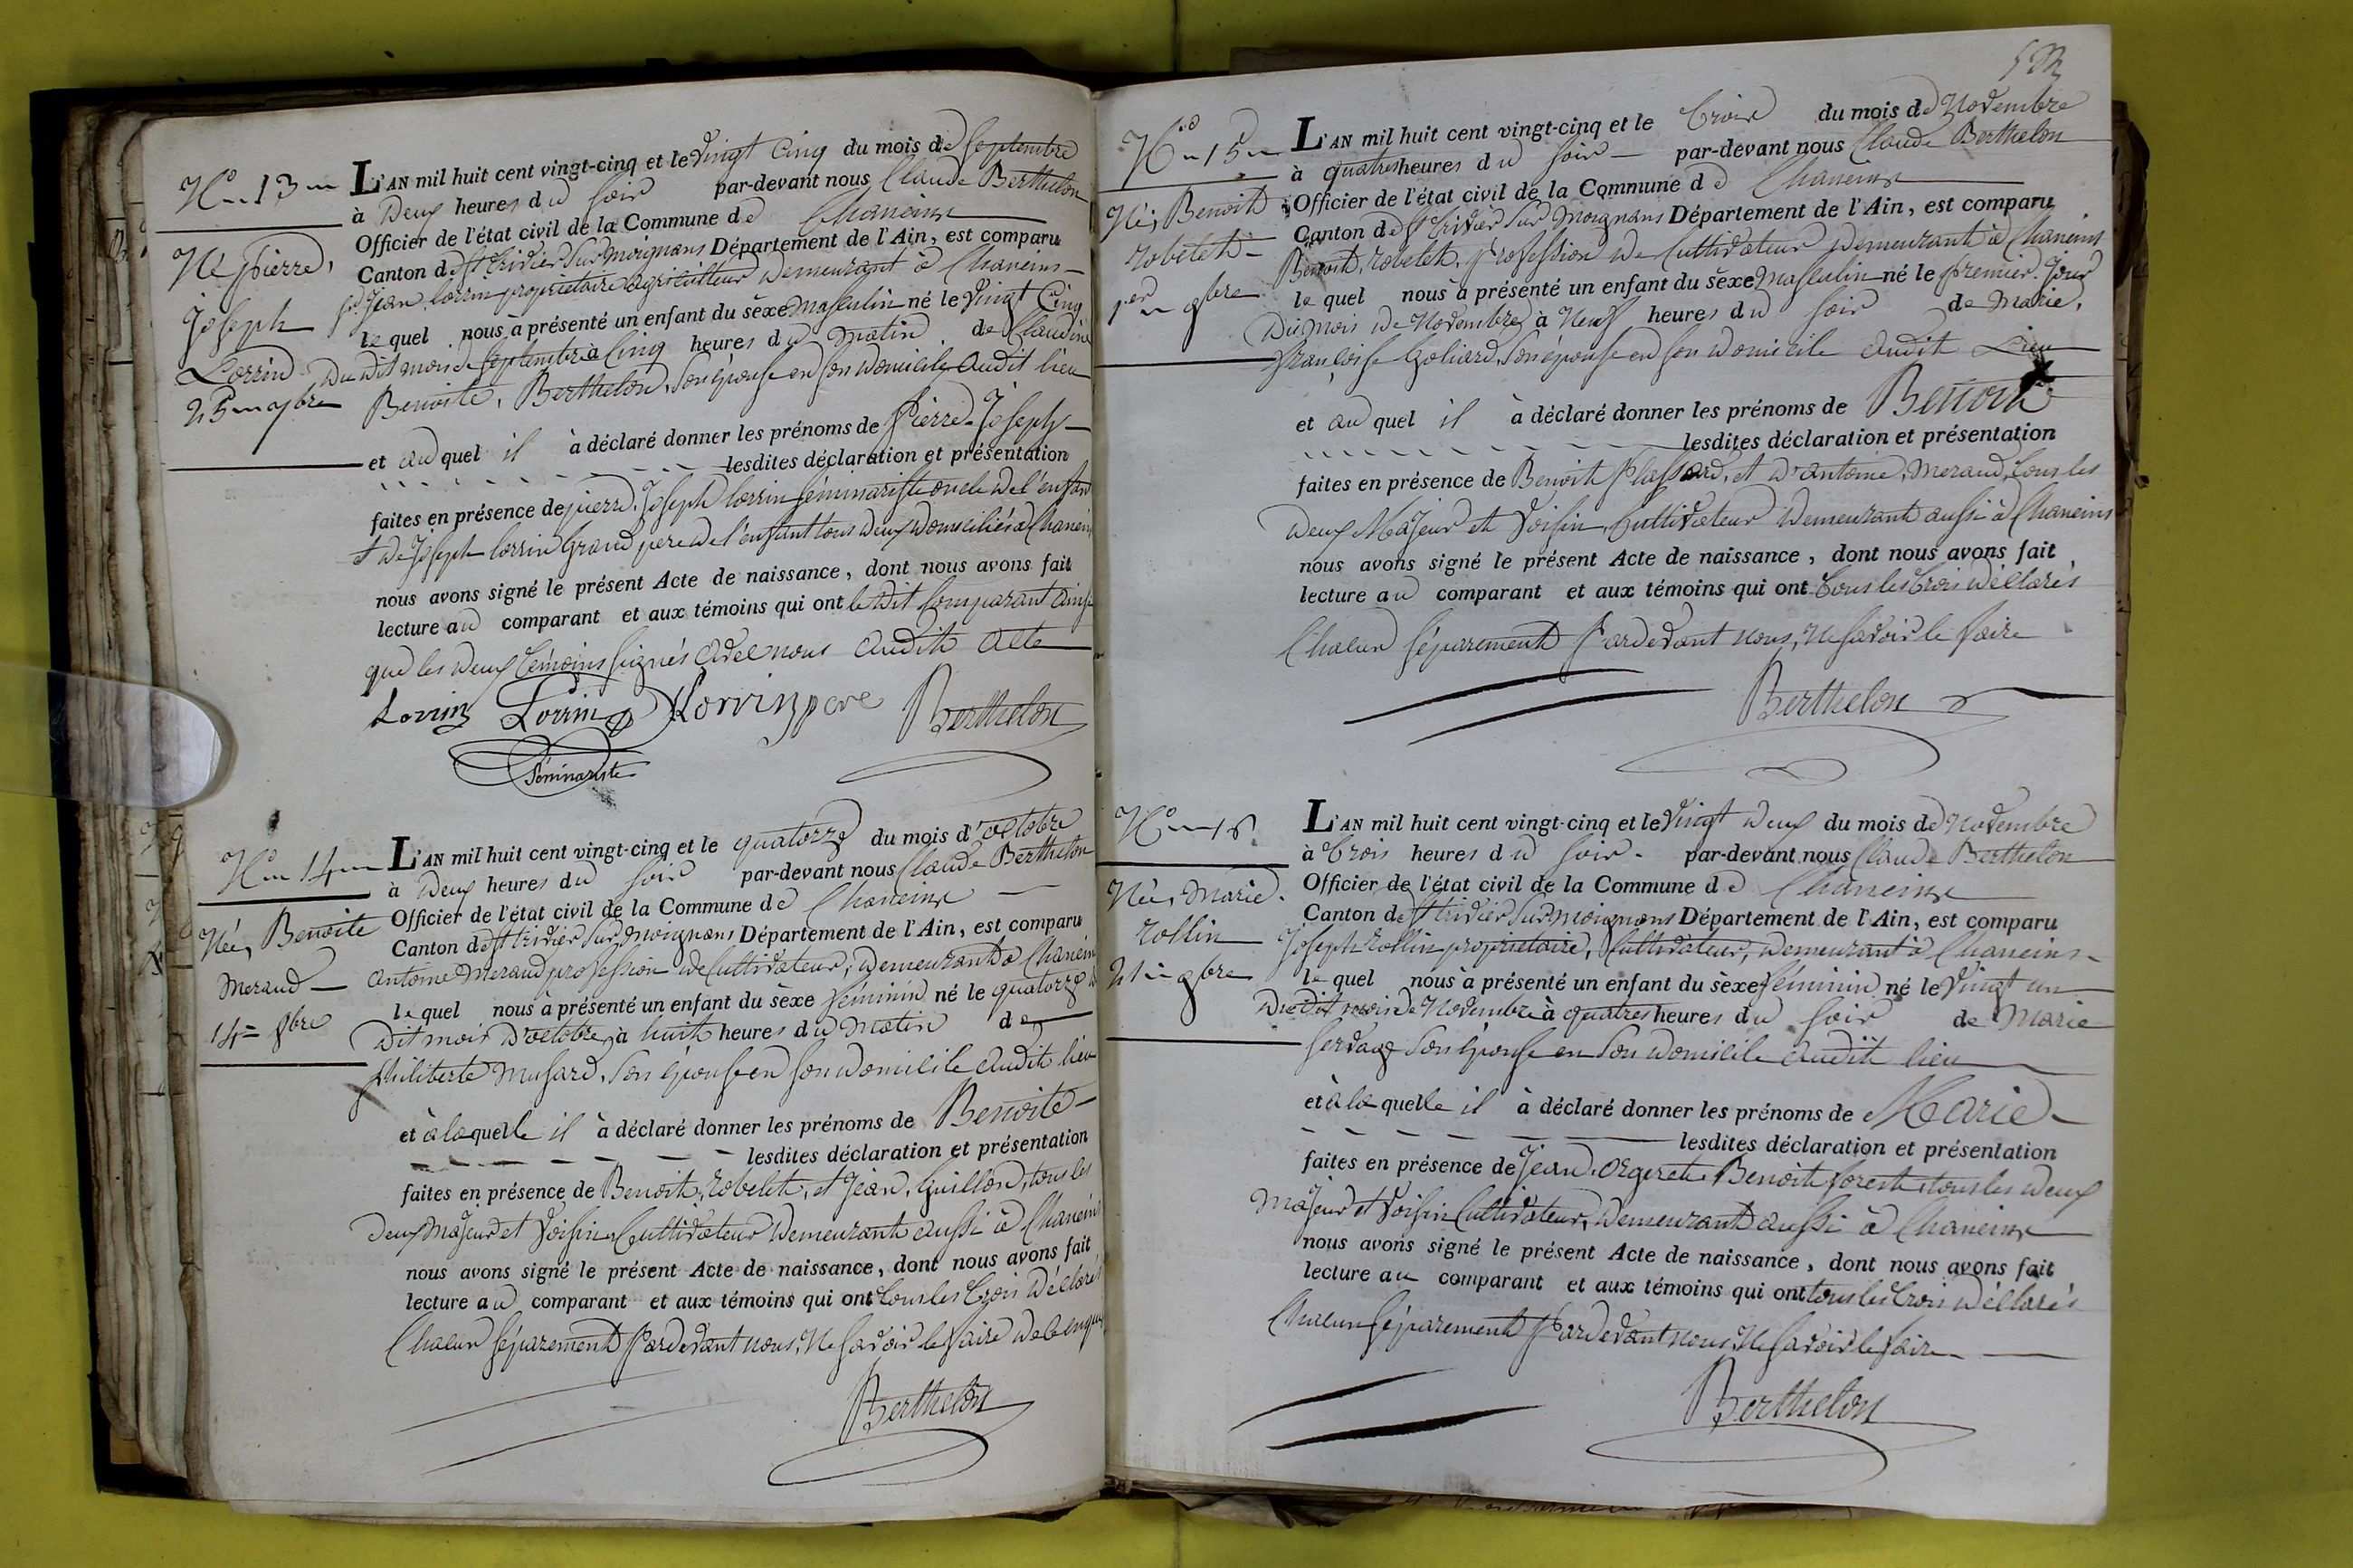 N.° 13
Né, Pierre,
Joseph
Lorrin
25 7bre
L'AN mil huit cent vingt-cinq et le Vingt Cinq du mois de Septembre
à Deux heures du soir par-devant nous Claude Berthelon
Officier de l'état civil de la Commune de Chaneins
Canton de St trivier Sur moignans Département de l'Ain, est comparu
Jean lorrin proprietaire agriculteur Demeurant à Chaneins
le quel nous à présenté un enfant du sèxe masculin né le Vingt Cinq
Du dit mois de Septembre à Cinq heures du matin de Claudine
Benoite, Berthelon, son épouse en son domicile audit lieu
et au quel il à déclaré donner les prénoms de Pierre Joseph
lesdites déclaration et présentation
faites en présence de pierre Joseph lorrin séminariste oncle de l'enfant
et de Joseph lorrin Grand pere de l'enfant tous deux domiciliés à Chaneins
nous avons signé le présent Acte de naissance, dont nous avons fait
lecture au comparant et aux témoins qui ont ledit Comparant ainsi
que les deux témoins signés avec nous audit acte
Lorrin Lorrin Lorrin pere Berthelon
Séminariste
N.° 14
Née, Benoite
Meraud
14 8bre
L'AN mil huit cent vingt-cinq et le quatorze du mois d'octobre
à Deux heures du soir par-devant nous Claude Berthelon
Officier de l'état civil de la Commune de Chaneins
Canton de St trivier Sur moignans Département de l'Ain, est comparu
antoine Meraud profession de Cultivateur, Demeurant à Chaneins
le quel nous à présenté un enfant du sèxe féminin né le quatorze du
dit mois D'octobre à huit heures du matin de
philiberte Musard, Son épouse en son domicile audit lieu
et à la quelle il à déclaré donner les prénoms de Benoite
lesdites déclaration et présentation
faites en présence de Benoit, robelet, et Jean, Guillon, tous les
deux majeur et Voisin, Cultivateur Demeurant aussi à Chaneins
nous avons signé le présent Acte de naissance, dont nous avons fait
lecture au comparant et aux témoins qui ont tous les trois déclarés
Chacun séparement Pardevant nous, Ne savoir le faire de ce enquis
Berthelon
N.° 15
Né, Benoit
robelet
1er 9bre
L'AN mil huit cent vingt-cinq et le trois du mois de Novembre
à quatres heures du soir par-devant nous Claude Berthelon
Officier de l'état civil de la Commune de Chaneins
Canton de St trivier Sur moignans Département de l'Ain, est comparu
Benoit, robelet, Profession de Cultivateur Demeurant à Chaneins
le quel nous à présenté un enfant du sèxe masculin né le premier Jour
Du mois de Novembre à Neuf heures du soir de Marie,
françoise Goliard, Son épouse en son domicile audit Lieu
et au quel il à déclaré donner les prénoms de Benoit
lesdites déclaration et présentation
faites en présence de Benoit Plassard, et d'antoine, Meraud, tous les
deux Majeur et Voisin, Cultivateur Demeurant aussi à Chaneins
nous avons signé le présent Acte de naissance, dont nous avons fait
lecture au comparant et aux témoins qui ont tous les trois déclarés
Chacun séparement Pardevant nous, Ne savoir le faire
Berthelon
N.° 16
Née, Marie
rollin
21 9bre
L'AN mil huit cent vingt-cinq et le Vingt Deux du mois de Novembre
à trois heures du soir par-devant nous Claude Berthelon
Officier de l'état civil de la Commune de Chaneins
Canton de St trivier Sur moignans Département de l'Ain, est comparu
Joseph rollin proprietaire, Cultivateur, Demeurant à Chaneins
le quel nous à présenté un enfant du sèxe féminin né le Vingt un
Du dit mois de Novembre à quatres heures du soir de Marie
Son épouse en Son domicile audit lieu
et à la quelle il à déclaré donner les prénoms de Marie
lesdites déclaration et présentation
faites en présence de Jean Orgeret Benoit forest tous les deux
Majeur et Voisin Cultivateur, Demeurant aussi à Chaneins
nous avons signé le présent Acte de naissance, dont nous avons fait
lecture au comparant et aux témoins qui ont tous les trois déclarés
Chacun séparement Pardevant nous, Ne savoir le faire
Berthelon